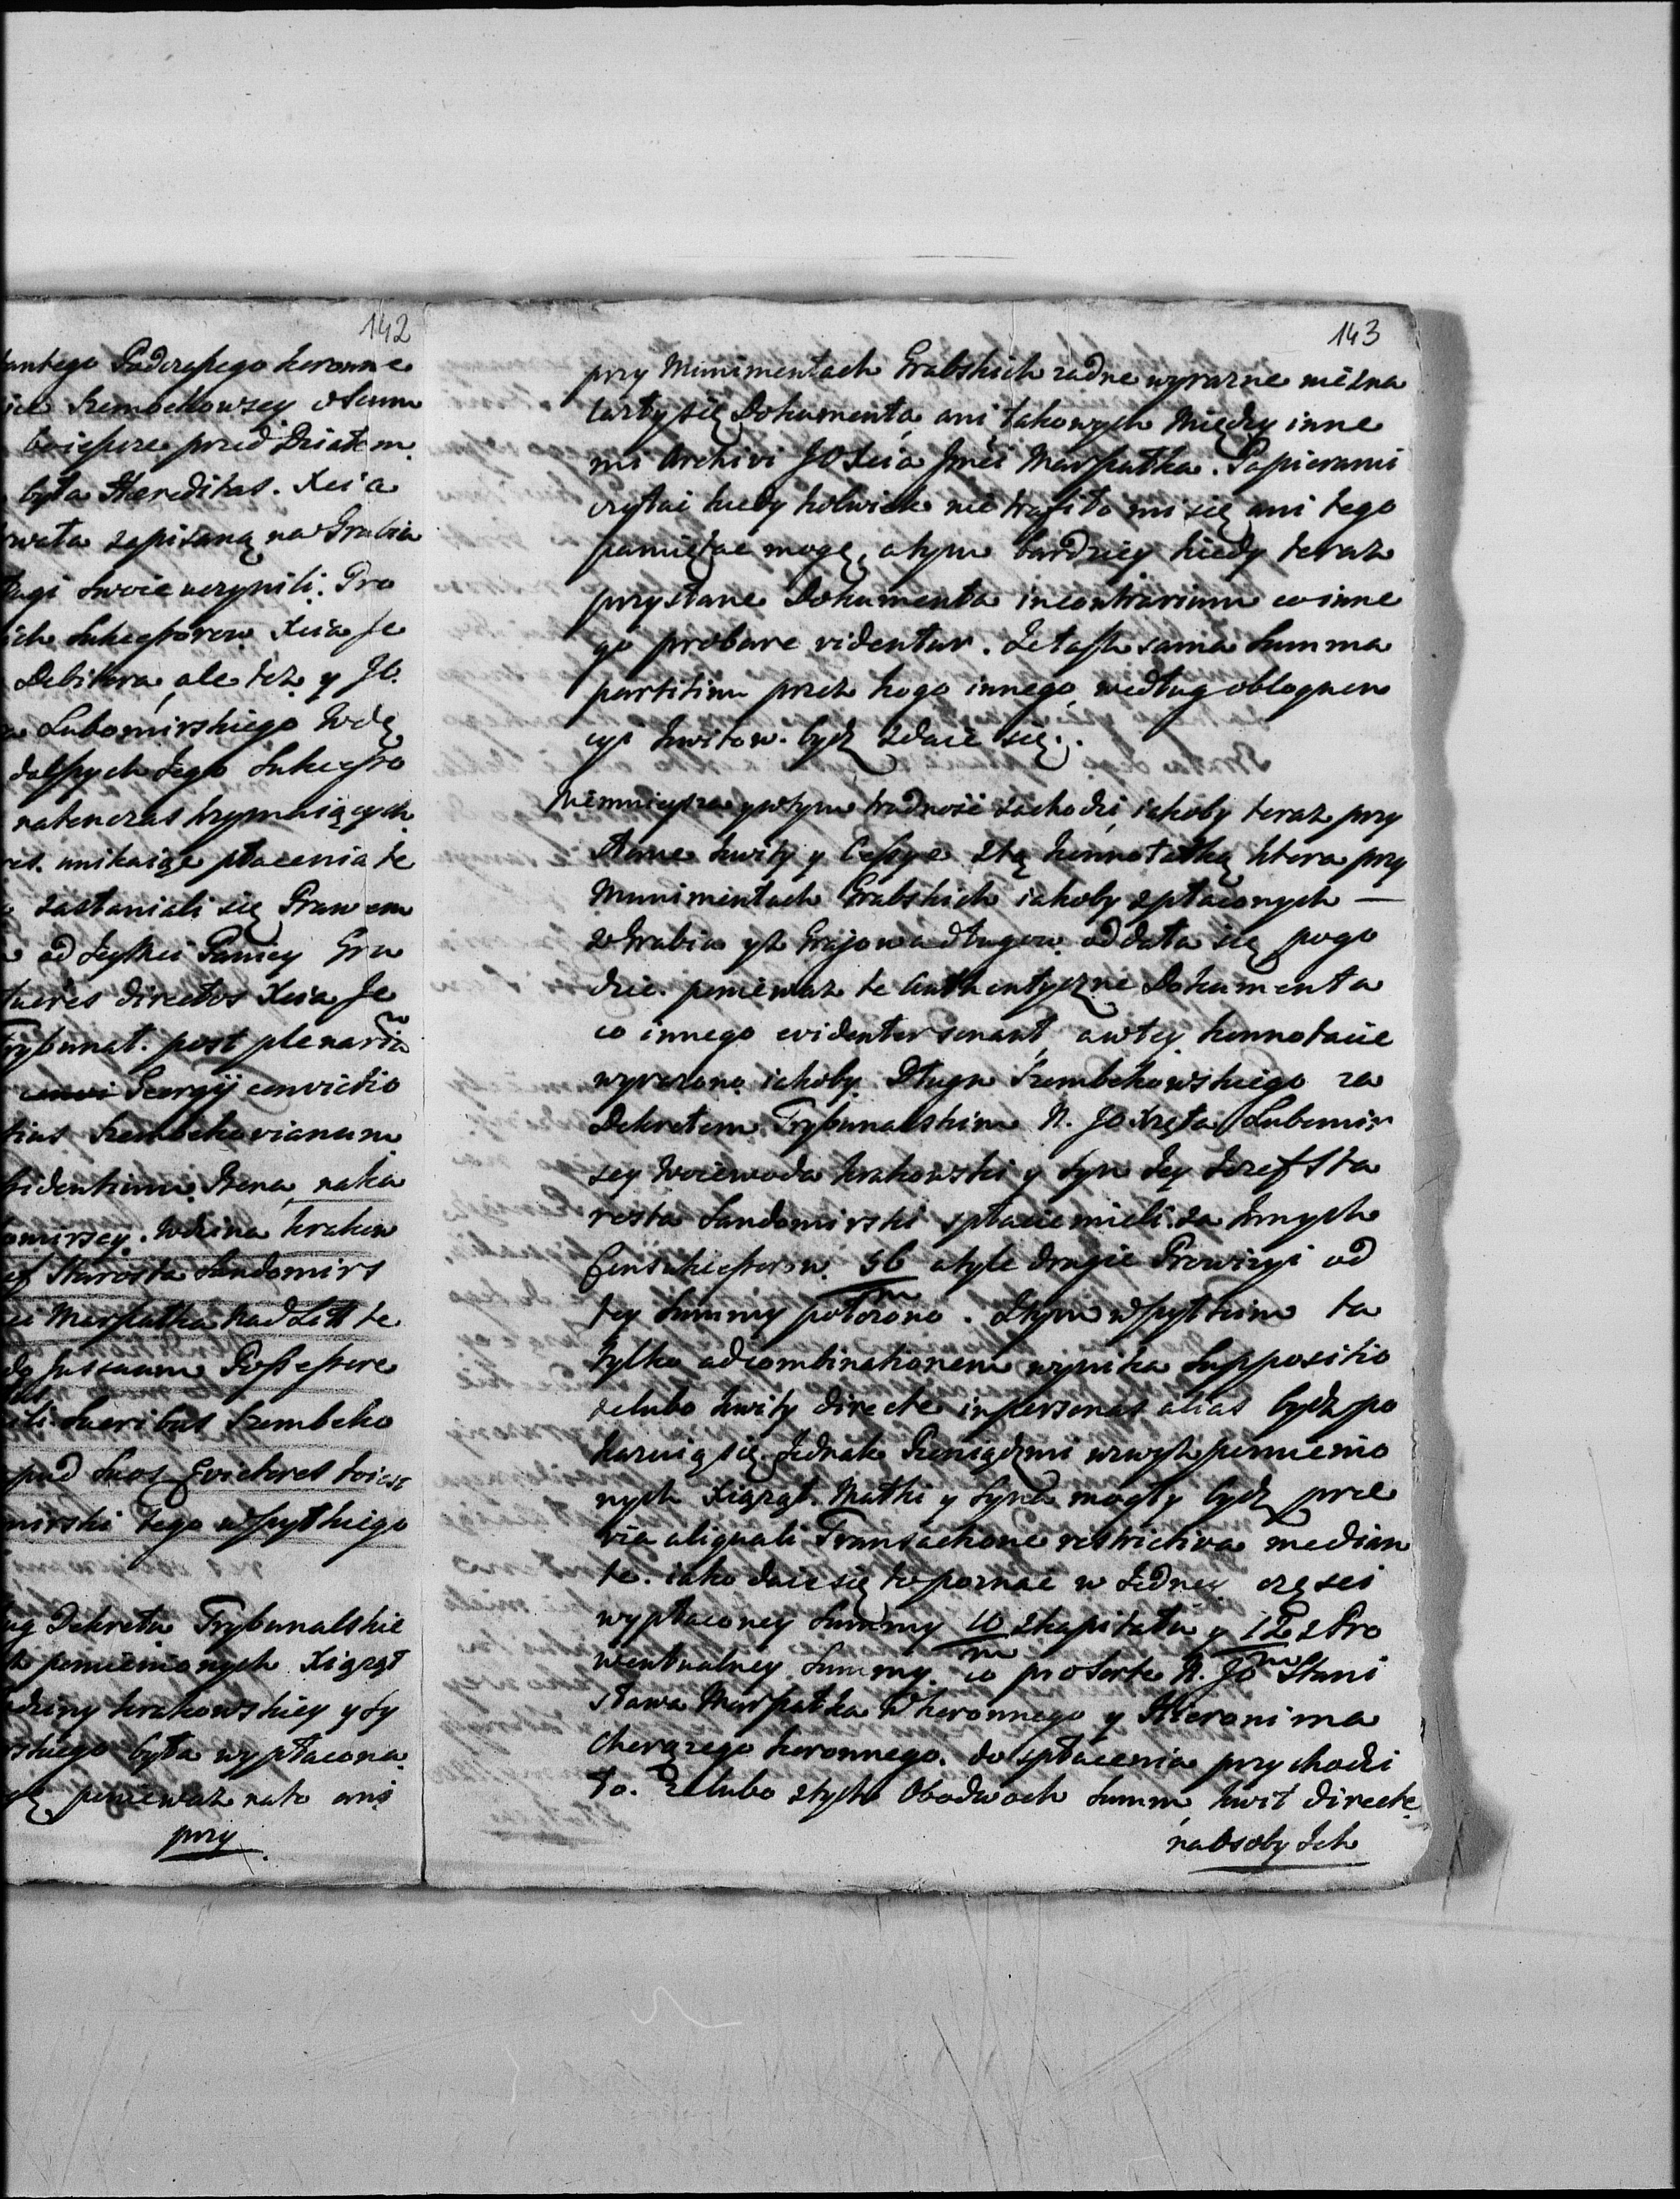 142
antego Podczaszego koronne
Szembekowzey
przed Działem
była Hæreditas. Xcia
zapisaną na Grabia
ugi swoie uczynili. Pro
ich Sukcessorow Xcia Je
Debitora, ale też y JO.
Lubomirskiego Wdę
dalszych Jego Sukcesso
natenczas trzymaiących
unikaiąc płacenia te
zastaniali się Prawem
od Panicy Gra
hæres directos Xcia Je
Trybunat. post plenariã
Georgij convictio
Szembekovianum
nata
omirscy. Wdzina krakow
Starosta Sandomirs
Marszałka Nad Litt te
Possessore
Hæribus Szembeko
pud Suos Evictores
mirski tego wszytkiego
ug Dekretu Trybunalskie
pomienionych Xiążąt
dziny krakowskiey y Sy
skiego była wypłacona
ponieważ nato ani
przy
143
przy Munimentach Grabskich żadne wyrazne nie zna
lazły się Dokumenta, ani takowych Między inne
mi Archivi JO Xcia Jmći Marszałka. Papierami
czytać kiedy kolwiek nie trafiło mi się, ani tego
pamiętać mogę, a tym bardziey kiedy teraz
przysłane Dokumenta in contrarium co inne
go probare videntur. Je taż sama Summa
partitim przez kogo innego, według obloquen
cyi kwitow. bydz zdaie się.
Niemnieysza y wtym trudność zachodzi, iakoby teraz przy
słane kwity y Cessye z tą konnotatką ktora przy
Munimentach Grabskich iakoby zpłaconych —
z Grabia y z Grajowa długow oddała się pogo
dzić. ponieważ te Authentyczne Dokumenta
co innego evidenter sonant, a w tey konnotacie
wyrażono iakoby. Długu Szembekowskiego za
Dekretem Trybunalskim N. JO Xżęta Lubomir
scy Woiewoda krakowski y Syn Jey Jozef Sta
rosta Sandomirski spłacić mieli. za Innych
Consukcessorow. 56 a tyle drugie Prowizyi od
m
tey Summy położono. Z tym wszytkim ta
tylko ad combinationem wynika Suppositio
że lubo kwity directe in personas alias bydz po
kazuią się. Jednak Pieniądzmi wzwyż pomienio
nych Xiążąt. Matki y Syna mogły bydz præ
via aliquali Transactione restrictiva median
te. iako daie się to poznać w Jedney części
wypłaconey Summy 10 z kapitału y 12 z Pro
m m
wentualney Summy. co pro sorte N. JO Stani
sława Marszałka W koronnego y Hieronima
Chorążego koronnego. do spłacenia przychodzi
ło. Ze lubo z tych Obodwoch Summ, kwit directe
na Osoby Jch